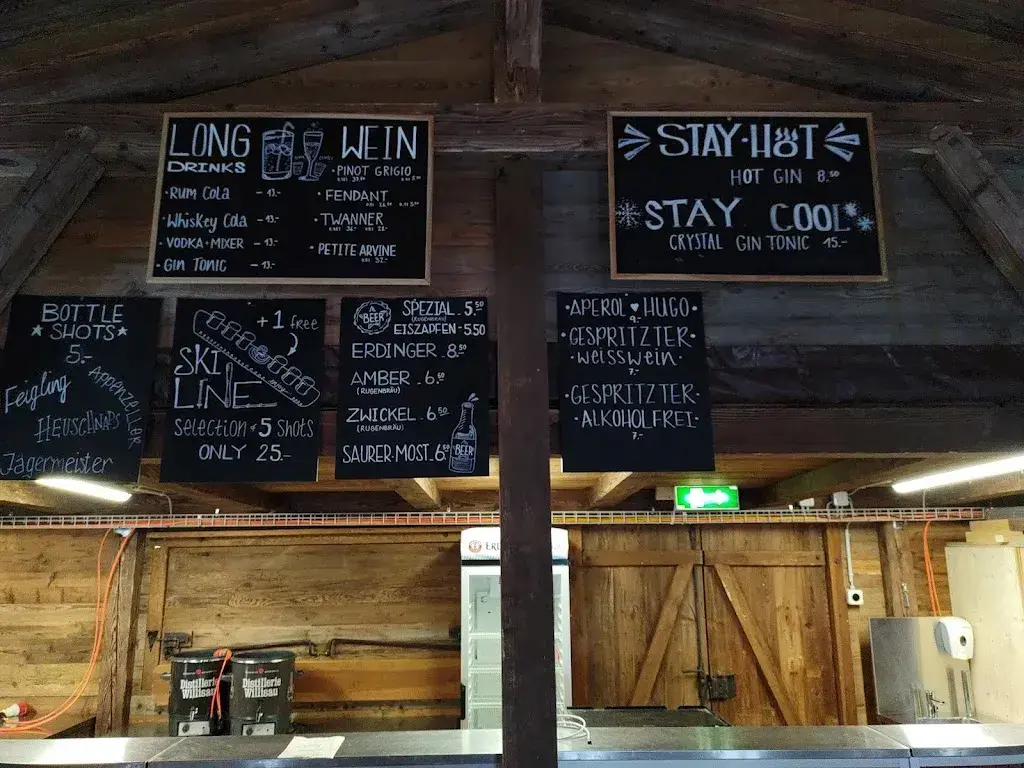 LONG
DRINKS
• Rum Cola - 13.-
• Whiskey Cola - 13.-
• VODKA+MIXER - 13.-
• GIN TONIC - 13.-
WEIN
• PINOT GRIGIO
• FENDANT
• TWANNER
• PETITE ARVINE
STAY•HOT
HOT GIN 8.50
STAY COOL
CRYSTAL GIN TONIC 15.-
BOTTLE
SHOTS
5.-
Feigling
APPENZELLER
HEUSCHNAPS
Jägermeister
+1 free
SKI
LINE
selection of 5 shots
ONLY 25.-
BEER
SPEZIAL - 5.50
(RUGENBRÄU)
EISZAPFEN - 5.50
ERDINGER - 8.50
AMBER - 6.50
(RUGENBRÄU)
ZWICKEL - 6.50
(RUGENBRÄU)
SAURER MOST - 6.50
BEER
• APEROL ♥ HUGO •
9.-
GESPRITZTER •
• weisswein •
7.-
• GESPRITZTER •
• ALKOHOLFREI •
7.-
Distillerie
Willisau
Distillerie
Willisau